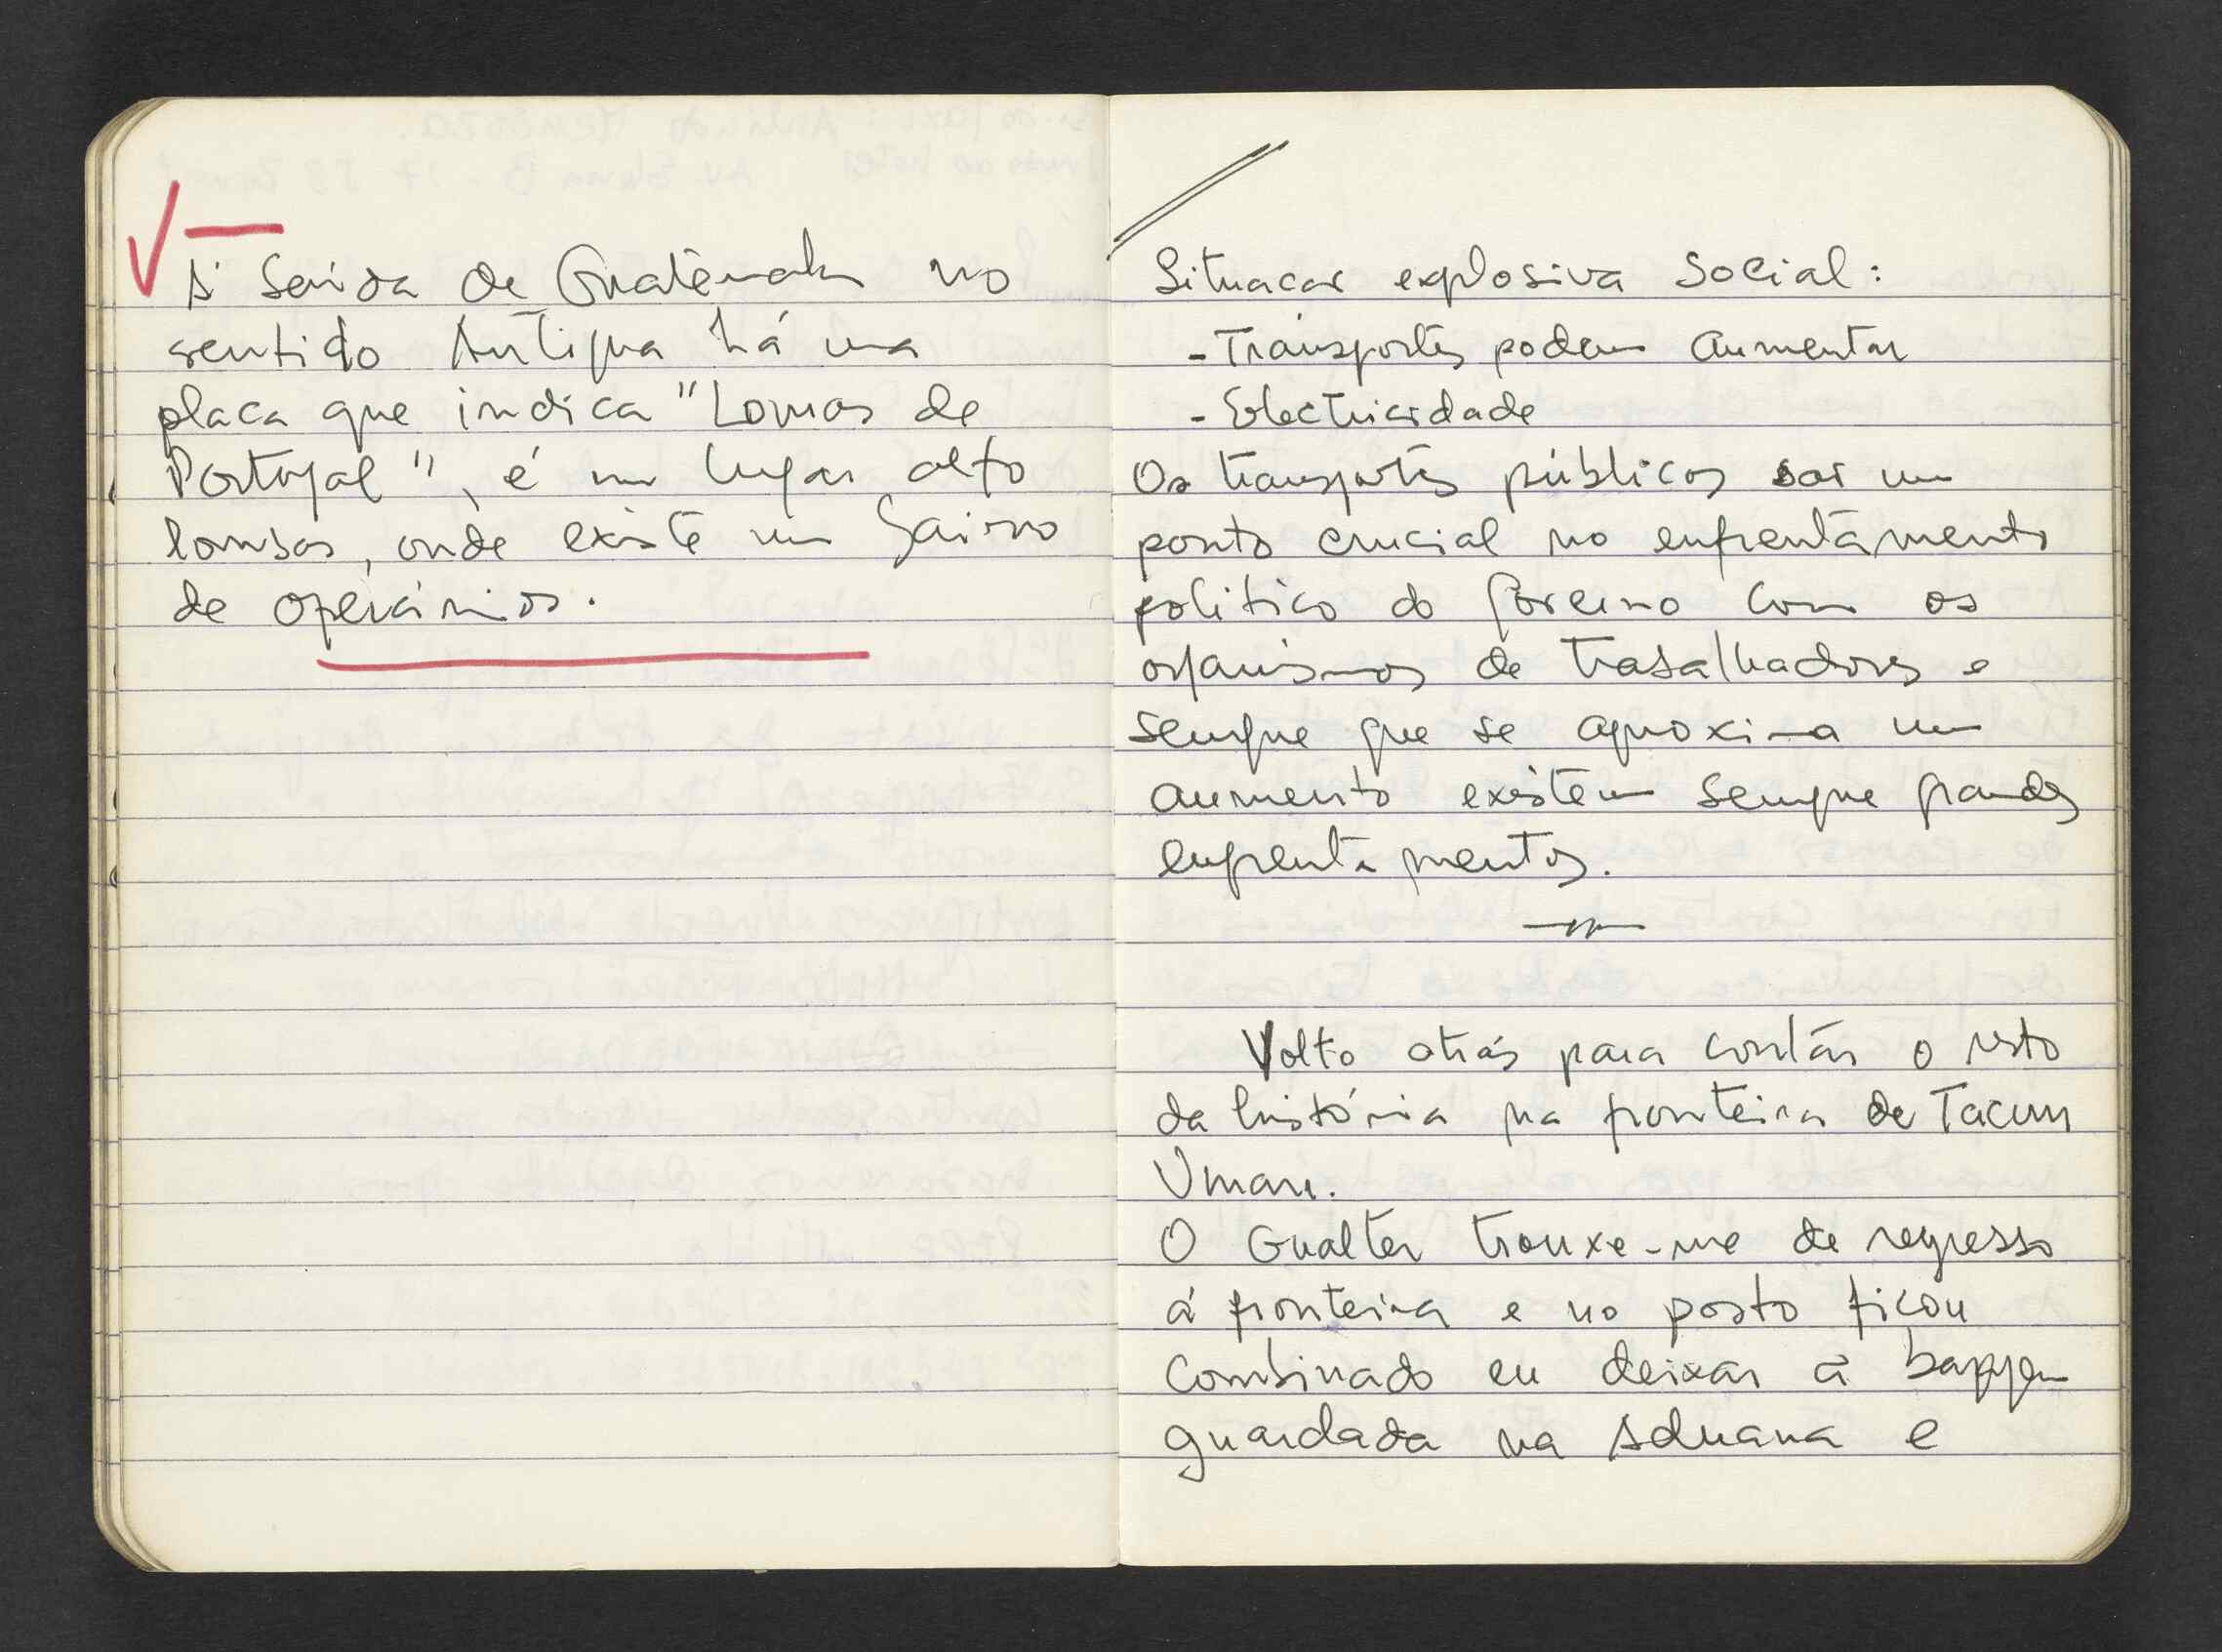 À saída de Guatemala no
sentido Antigua há uma
placa que indica "Lomas de
Portugal", é um lugar alto
lombas, onde existe um bairro
de operários.
Situação explosiva social:
- Transportes podem aumentar
- Electricidade
Os transportes públicos são um
ponto crucial no enfrentamento
político do Governo com os
organismos de trabalhadores e
sempre que se aproxima um
aumento existem sempre grandes
enfrentamentos.
Volto atrás para contar o resto
da história na fronteira de Tacun
Uman.
O Gualter trouxe-me de regresso
á fronteira e no posto ficou
combinado eu deixar a bagagem
guardada na Aduana e